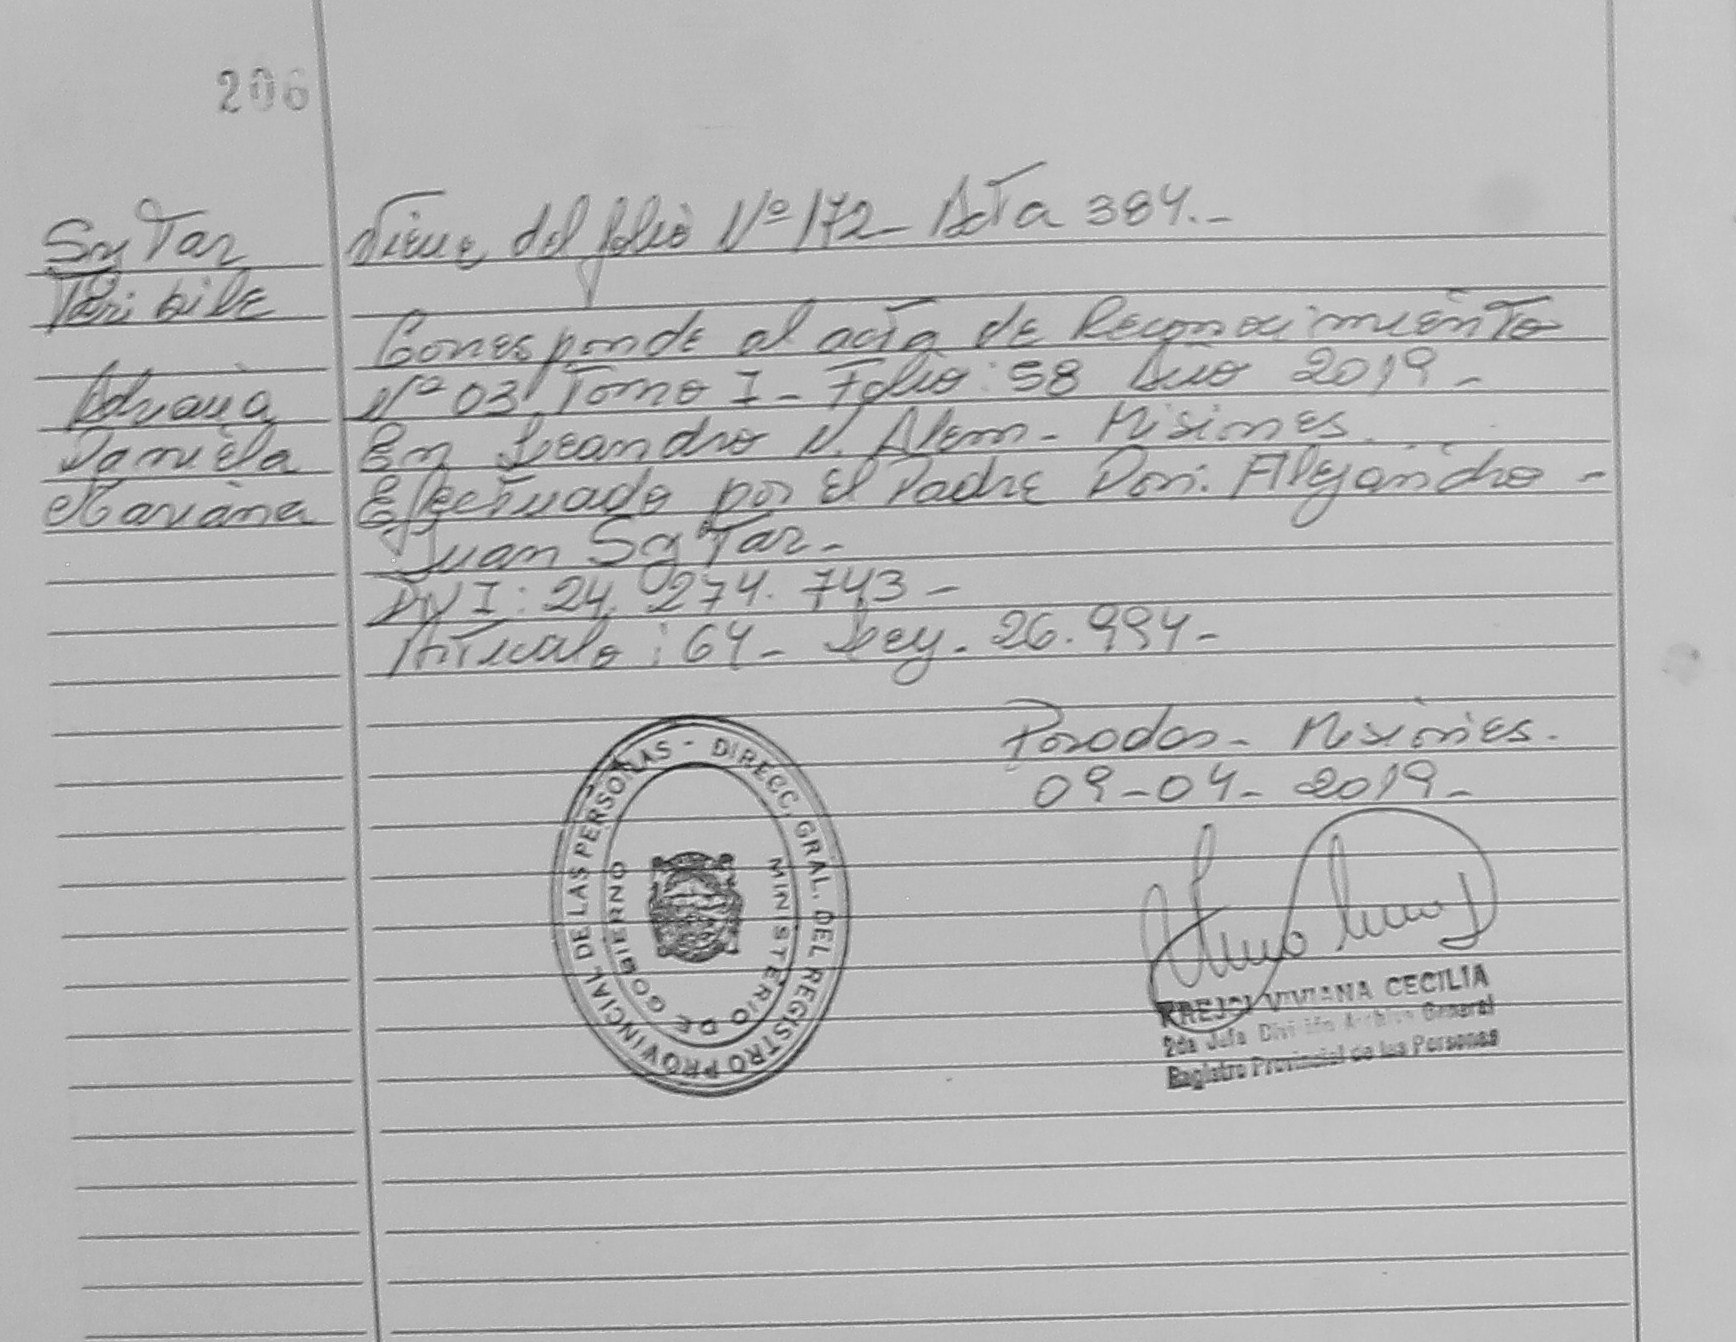 206
Viene del folio Nº 172- Acta 384.-
Sy Tar
Corresponde al acta de Reconocimiento
Nº 03 Tomo I - Folio: 58 Año 2019-
Adriana
En Leandro N. Alem - Misiones
Daniela
Efectuado por El Padre Don: Alejandro -
Mariana
Juan Sy Tar-
DNI: 24.274.743-
Artículo: 64- Ley. 26.994-
Posadas- Misiones.
09-04-2019-
DIRECC. GRAL. DEL REGISTRO PROVINCIAL DE LAS PERSONAS -
MINISTERIO DE GOBIERNO
VIVIANA CECILIA
2da Jefa División Archivo General
Registro Provincial de las Personas